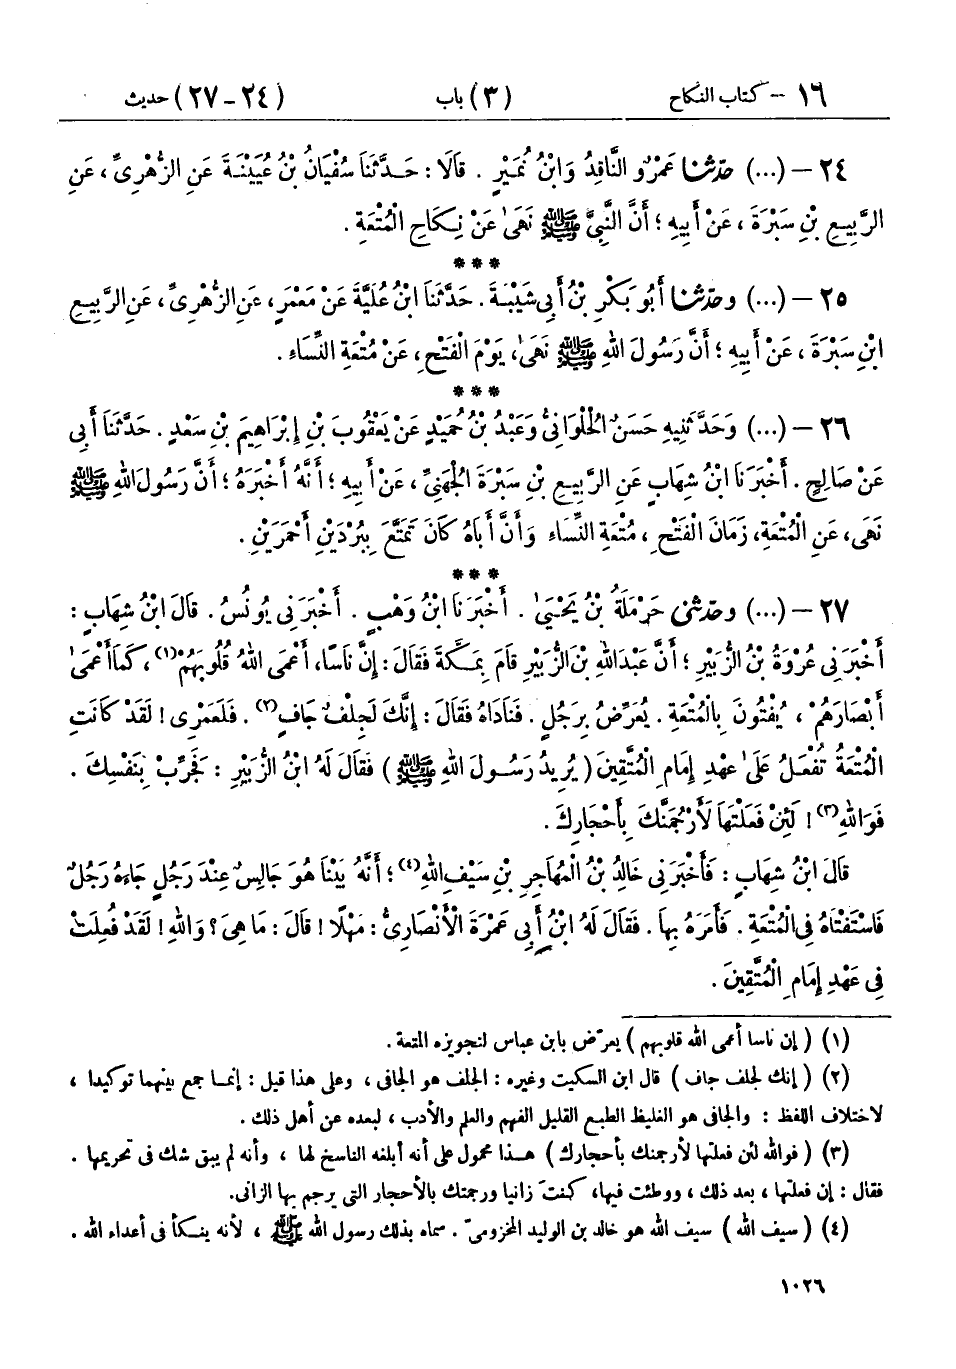 ١٦ – كتاب النكاح (٣) باب (٢٤ – ٢٧) حديث
٢٤ – (...) حدثنا عَمْرٌو النَّاقِدُ وَابْنُ نُمَيْرٍ . قَالَا : حَدَّثَنَا سُفْيَانُ بْنُ عُيَيْنَةَ عَنِ الزُّهْرِيِّ ، عَنِ
الرَّبِيعِ بْنِ سَبْرَةَ ، عَنْ أَبِيهِ ؛ أَنَّ النَّبِيَّ ﷺ نَهَىٰ عَنْ نِكَاحِ الْمُتْعَةِ .
***
٢٥ – (...) وحدثنا أَبُو بَكْرِ بْنُ أَبِي شَيْبَةَ . حَدَّثَنَا ابْنُ عُلَيَّةَ عَنْ مَعْمَرٍ ، عَنِ الزُّهْرِيِّ ، عَنِ الرَّبِيعِ
ابْنِ سَبْرَةَ ، عَنْ أَبِيهِ ؛ أَنَّ رَسُولَ اللهِ ﷺ نَهَىٰ، يَوْمَ الْفَتْحِ، عَنْ مُتْعَةِ النِّسَاءِ .
***
٢٦ – (...) وَحَدَّثَنِيهِ حَسَنٌ الْحُلْوَانِيُّ وَعَبْدُ بْنُ حُمَيْدٍ عَنْ يَعْقُوبَ بْنِ إِبْرَاهِيمَ بْنِ سَعْدٍ . حَدَّثَنَا أَبِي
عَنْ صَالِحٍ . أَخْبَرَنَا ابْنُ شِهَابٍ عَنِ الرَّبِيعِ بْنِ سَبْرَةَ الْجُهَنِيِّ ، عَنْ أَبِيهِ ؛ أَنَّهُ أَخْبَرَهُ ؛ أَنَّ رَسُولَ اللهِ ﷺ
نَهَى، عَنِ الْمُتْعَةِ، زَمَانَ الْفَتْحِ ، مُتْعَةِ النِّسَاءِ وَأَنَّ أَبَاهُ كَانَ تَمَتَّعَ بِبُرْدَيْنِ أَحْمَرَيْنِ .
***
٢٧ – (...) وحدثنى حَرْمَلَةُ بْنُ يَحْيَىٰ . أَخْبَرَنَا ابْنُ وَهْبٍ . أَخْبَرَنِي يُونُسُ . قَالَ ابْنُ شِهَابٍ :
أَخْبَرَنِي عُرْوَةُ بْنُ الزُّبَيْرِ ؛ أَنَّ عَبْدَ اللهِ بْنَ الزُّبَيْرِ قَامَ بِمَكَّةَ فَقَالَ : إِنَّ نَاسًا، أَعْمَى اللهُ قُلُوبَهُمْ(١)، كَمَا أَعْمَىٰ
أَبْصَارَهُمْ ، يُفْتُونَ بِالْمُتْعَةِ . يُعَرِّضُ بِرَجُلٍ . فَنَادَاهُ فَقَالَ : إِنَّكَ لَجِلْفٌ جَافٍ(٢) . فَلَعَمْرِى ! لَقَدْ كَانَتِ
الْمُتْعَةُ تُفْعَلُ عَلَىٰ عَهْدِ إِمَامِ الْمُتَّقِينَ ( يُرِيدُ رَسُولَ اللهِ ﷺ ) فَقَالَ لَهُ ابْنُ الزُّبَيْرِ : فَجَرِّبْ بِنَفْسِكَ .
فَوَاللهِ(٣)! لَئِنْ فَعَلْتَهَا لَأَرْجُمَنَّكَ بِأَحْجَارِكَ .
قَالَ ابْنُ شِهَابٍ : فَأَخْبَرَنِي خَالِدُ بْنُ الْمُهَاجِرِ بْنِ سَيْفِ اللهِ(٤) ؛ أَنَّهُ بَيْنَا هُوَ جَالِسٌ عِنْدَ رَجُلٍ جَاءَهُ رَجُلٌ
فَاسْتَفْتَاهُ فِي الْمُتْعَةِ . فَأَمَرَهُ بِهَا . فَقَالَ لَهُ ابْنُ أَبِي عَمْرَةَ الْأَنْصَارِىُّ : مَهْلًا ! قَالَ : مَا هِىَ ؟ وَاللهِ ! لَقَدْ فُعِلَتْ
فِي عَهْدِ إِمَامِ الْمُتَّقِينَ .
(١) ( إن ناسا أعمى الله قلوبهم ) يعرّض بابن عباس لتجويزه المتعة .
(٢) ( إنك لجلف جاف ) قال ابن السكيت وغيره : الجلف هو الجافى ، وعلى هذا قيل : إنما جمع بينهما توكيدا ،
لاختلاف اللفظ : والجافى هو الغليظ الطبع القليل الفهم والعلم والأدب ، لبعده عن أهل ذلك .
(٣) ( فوالله لئن فعلتها لأرجمنك بأحجارك ) هذا محمول على أنه أبلغه الناسخ لها ، وأنه لم يبق شك فى تحريمها .
فقال : إن فعلتها ، بعد ذلك ، ووطئت فيها، كنت زانيا ورجمتك بالأحجار التى يرجم بها الزانى.
(٤) ( سيف الله ) سيف الله هو خالد بن الوليد المخزومىّ . سماه بذلك رسول الله ﷺ ، لأنه ينكأ فى أعداء الله .
١٠٢٦